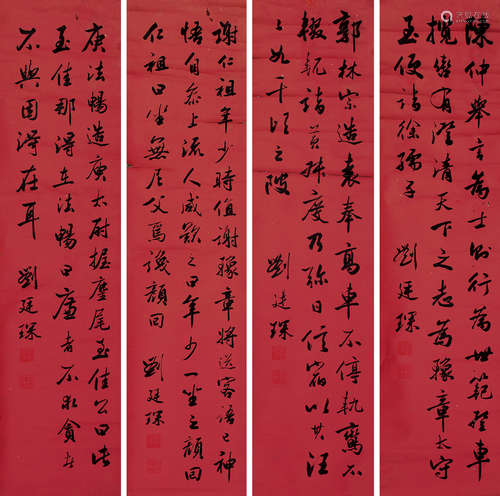 陳仲舉言為士則行為世範登車
攬轡有澄清天下之志為豫章太守
至便詣徐孺子 劉廷琛
郭林宗造袁奉高車不停軌鸞不
輟軛詣黃叔度乃弥日信宿以其汪
〻如千頃之陂 劉廷琛
謝仁祖年少時值謝豫章將送客語已神
悟自參上流人咸歎之曰年少一坐之顏回
仁祖曰坐無尼父焉識顏回 劉廷琛
庾法暢造庾太尉握麈尾至佳公曰此
至佳那得在法暢曰廉者不求貪者
不與固得在耳 劉廷琛